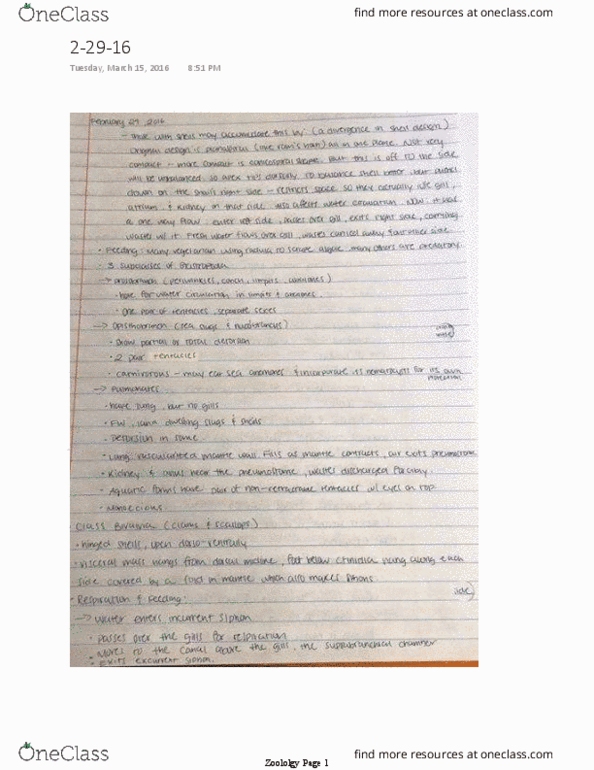 OneClass
find more resources at oneclass.com
2-29-16
Tuesday, March 15, 2016 8:51 PM
February 29 2016
- those with shells may accomodate this by: (a divergence in shell design)
original design is planispiral (like ram's horn) all in one plane. Not very
compact - more compact is conospiral shape. But this is off to the side
will be unbalanced, so
down on the snail's right side - restricts space. so they actually lose gill,
atrium & kidney on that side. also affects water circulation. Now: it has
a one way flow: enter left side, passes over gill, exits right side, carrying
wastes w/ it. Fresh water flows over gill, wastes carried away from other side.
• Feeding: Many vegetarian using radula to scrape algae. Many others are predatory.
• 3 subclasses of Gastropoda
→ prosobranch (periwinkles, conch, limpets, abalones)
• hole for water circulation in limpets & abalones.
• one pair of tentacles, separate sexes
→ Opisthobranch (sea slugs & nudibranchs)
• Show partial or total detorsion
• 2 pair tentacles
• carnivorous - may eat sea anemones & incorporate its nematocysts for its own
protection
→ Pulmonates
• have lung, but no gills
• FW, land dwelling slugs & snails
• Detorsion in some
• Lung: vasculated mantle wall. Fills as mantle contracts, air exits pneumostome
• Kidney & anus near the pneumostome, wastes discharged forcibly.
• Aquatic forms have pair of non-retractable tentacles w/ eyes on top
• Monoecious
• Class Bivalvia (clams & scallops)
• hinged shells, open dorso-ventrally
• visceral mass hangs from dorsal midline, foot below ctenidia hang along each
side covered by a fold in mantle which also makes siphons
• Respiration & feeding:
→ Water enters incurrent siphon
• Passes over the gills for respiration
• Moves to the canal above the gill, the suprabranchial chamber
• Exits excurrent siphon.
OneClass
Zoololgy Page 1
find more resources at oneclass.com